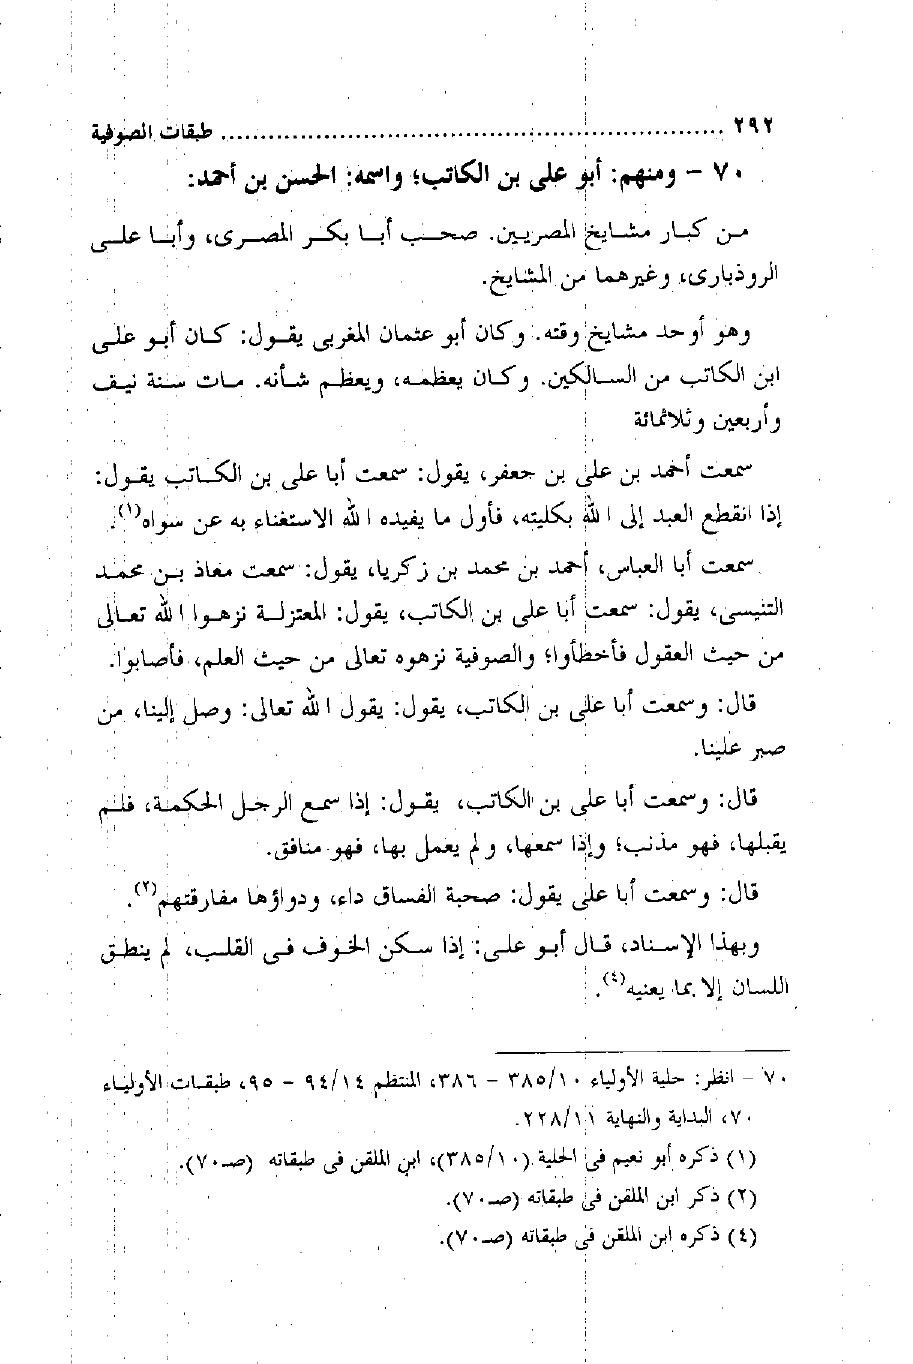 ٢٩٢ ................................................................ طبقات الصوفية
٧٠ – ومنهم: أبو على بن الكاتب؛ واسمه: الحسن بن أحمد:
من كبار مشايخ المصريين. صحب أبا بكر المصرى، وأبا على
الروذبارى، وغيرهما من المشايخ.
وهو أوحد مشايخ وقته. وكان أبو عثمان المغربى يقول: كان أبو على
ابن الكاتب من السالكين. وكان يعظمه، ويعظم شأنه. مات سنة نيف
وأربعين وثلاثمائة
سمعت أحمد بن على بن جعفر، يقول: سمعت أبا على بن الكاتب يقول:
إذا انقطع العبد إلى الله بكليته، فأول ما يفيده الله الاستغناء به عن سواه(١).
سمعت أبا العباس، أحمد بن محمد بن زكريا، يقول: سمعت معاذ بن محمد
التنيسى، يقول: سمعت أبا على بن الكاتب، يقول: المعتزلة نزهوا الله تعالى
من حيث العقول فأخطأوا؛ والصوفية نزهوه تعالى من حيث العلم، فأصابوا.
قال: وسمعت أبا على بن الكاتب، يقول: يقول الله تعالى: وصل إلينا، من
صبر علينا.
قال: وسمعت أبا على بن الكاتب، يقول: إذا سمع الرجل الحكمة، فلم
يقبلها، فهو مذنب؛ وإذا سمعها، ولم يعمل بها، فهو منافق.
قال: وسمعت أبا على يقول: صحبة الفساق داء، ودواؤها مفارقتهم(٢).
وبهذا الإسناد، قال أبو على: إذا سكن الخوف فى القلب، لم ينطق
اللسان إلا بما يعنيه(٤).
٧٠ – انظر: حلية الأولياء ٣٨٥/١٠ – ٣٨٦، المنتظم ٩٤/١٤ – ٩٥، طبقات الأولياء
٧٠، البداية والنهاية ٢٢٨/١١.
(١) ذكره أبو نعيم فى الحلية (٣٨٥/١٠)، ابن الملقن فى طبقاته (صـ٧٠).
(٢) ذكر ابن الملقن فى طبقاته (صـ٧٠).
(٤) ذكره ابن الملقن فى طبقاته (صـ٧٠).